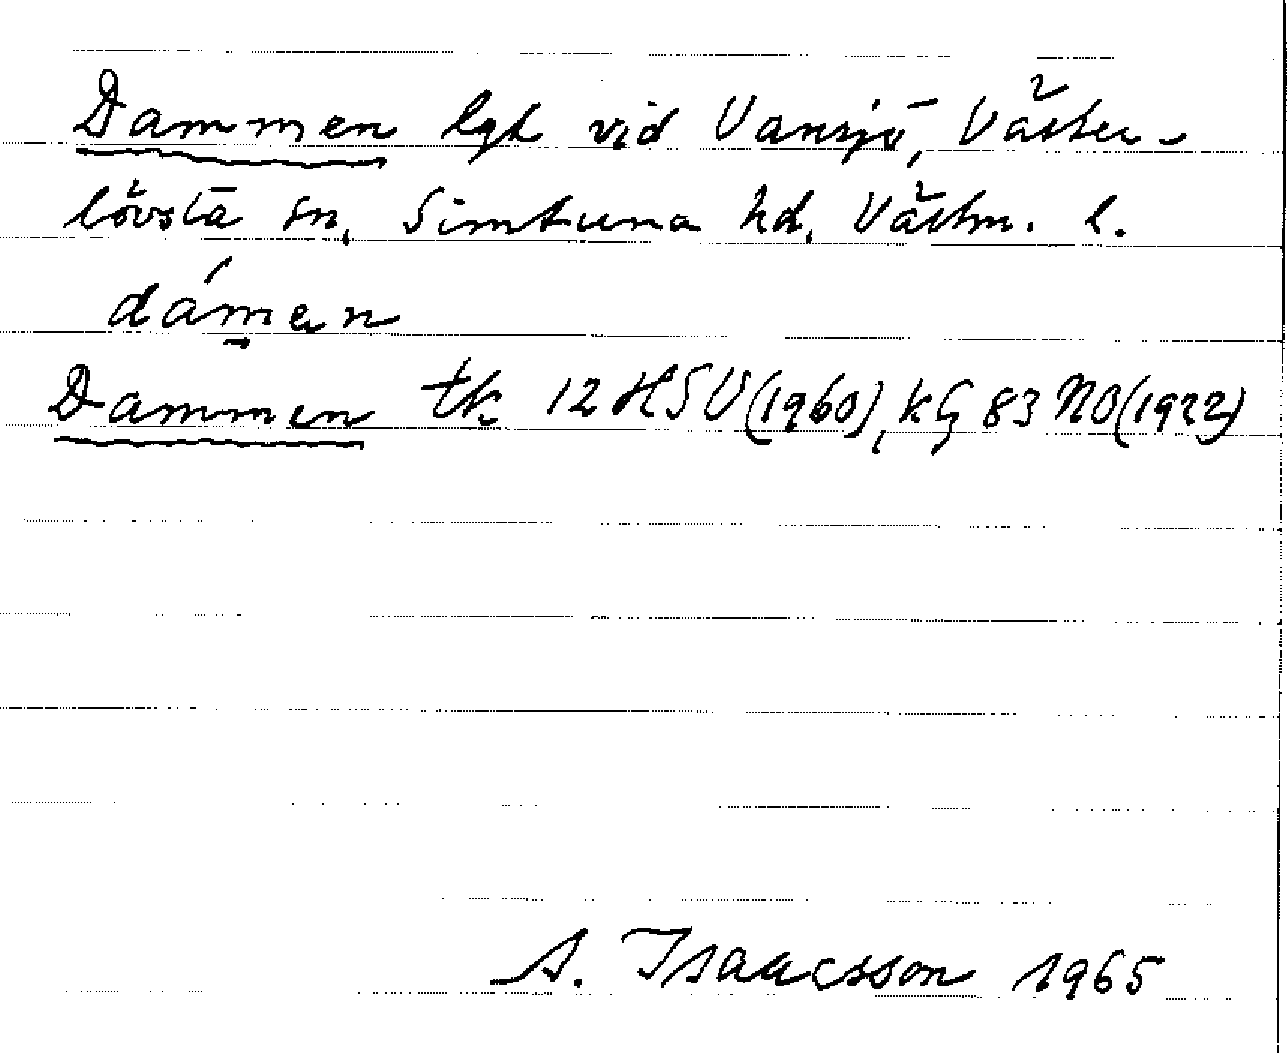 Dammen lgh vid Vansjö, Väster-
lövsta sn, Simtuna hd, Västm. l.
dám̱en
Dammen tk 12 H SV (1960), kG 83 NO (1922)
A. Isaacsson 1965